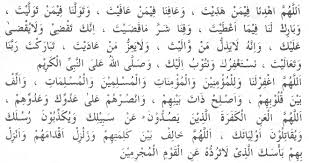 اَللّٰهُمَّ اهْدِنَا فِيْمَنْ هَدَيْتَ ، وَعَافِنَا فِيْمَنْ عَافَيْتَ ، وَتَوَلَّنَا فِيْمَنْ تَوَلَّيْتَ ،
وَبَارِكْ لَنَا فِيْمَا اَعْطَيْتَ ، وَقِنَا شَرَّ مَاقَضَيْتَ ، اِنَّكَ تَقْضِىْ وَلَايُقْضٰى
عَلَيْكَ ، وَاِنَّهُ لَايَذِلُّ مَنْ وَّالَيْتَ ، وَلَايَعِزُّ مَنْ عَادَيْتَ ، تَبَارَكْتَ رَبَّنَا
وَتَعَالَيْتَ ، نَسْتَغْفِرُكَ وَنَتُوْبُ اِلَيْكَ ، وَصَلَّى اللهُ عَلَى النَّبِىِّ الْكَرِيْمِ
اَللّٰهُمَّ اغْفِرْلَنَا وَلِلْمُؤْمِنِيْنَ وَالْمُؤْمِنَاتِ وَالْمُسْلِمِيْنَ وَالْمُسْلِمَاتِ ، وَاَلِّفْ
بَيْنَ قُلُوْبِهِمْ ، وَاَصْلِحْ ذَاتَ بَيْنِهِمْ ، وَانْصُرْهُمْ عَلٰى عَدُوِّكَ وَعَدُوِّهِمْ ،
اَللّٰهُمَّ الْعَنِ الْكَفَرَةَ الَّذِيْنَ يَصُدُّوْنَ عَنْ سَبِيْلِكَ وَيُكَذِّبُوْنَ رُسُلَكَ
وَيُقَاتِلُوْنَ اَوْلِيَائَكَ ، اَللّٰهُمَّ خَالِفْ بَيْنَ كَلِمَتِهِمْ وَزَلْزِلْ اَقْدَامَهُمْ وَاَنْزِلْ
بِهِمْ بَأْسَكَ الَّذِىْ لَاتَرُدُّهُ عَنِ الْقَوْمِ الْمُجْرِمِيْنَ